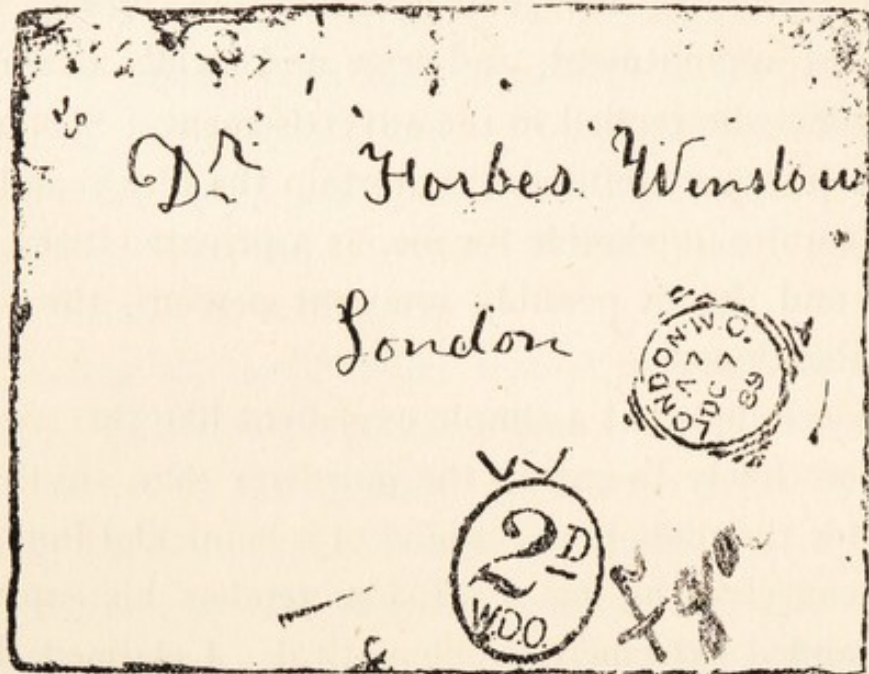 Dr Forbes Winslow
London
LONDON·W.C.
A 7
DC 7
89
2D
W.D.O.